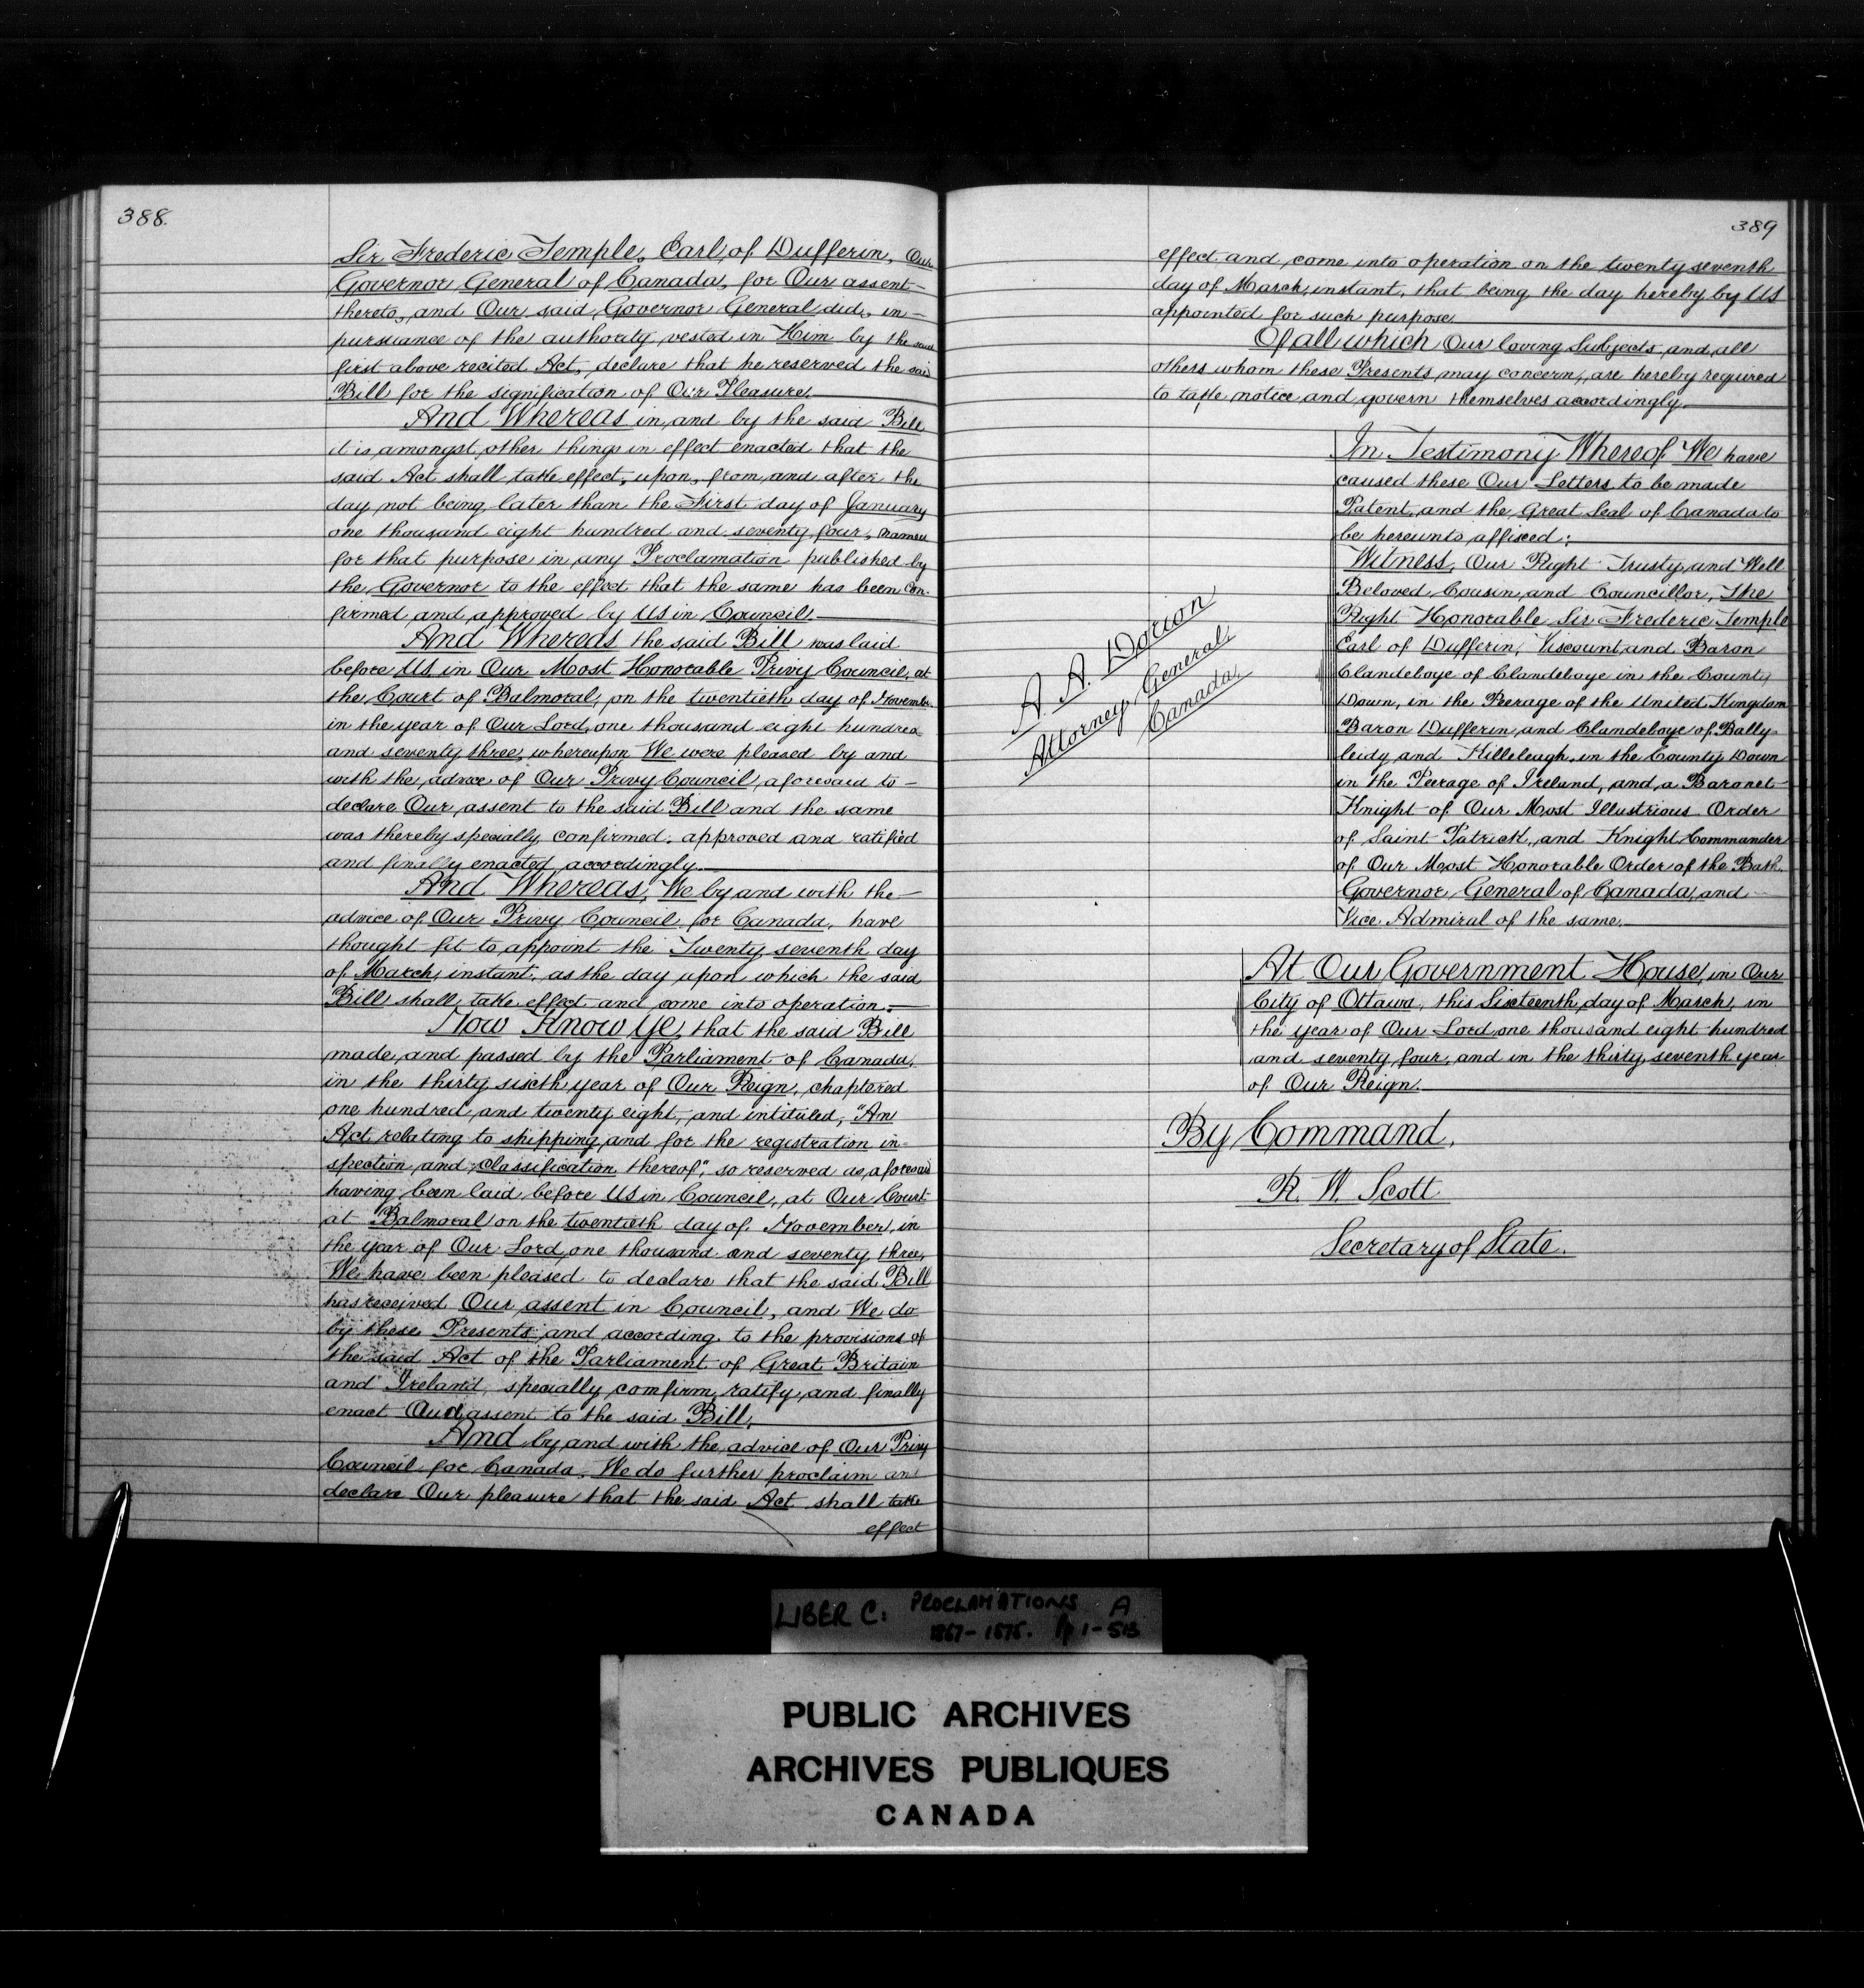 388.
Sir Frederic Temple, Earl of Dufferin, Our
Governor General of Canada, for Our assent-
thereto, and Our said Governor General did, in-
pursuance of the authority vested in Him by the said
first above recited Act, declare that he reserved the said
Bill for the signification of Our Pleasure.
And Whereas in and by the said Bill
it is amongst other things in effect enacted that the
said Act shall take effect, upon, from, and after the
day not being later than the First day of January
one thousand eight hundred and seventy four, named
for that purpose in any Proclamation published by
the Governor to the effect that the same has been con-
firmed and approved by Us in Council.
And Whereas the said Bill was laid
before Us in Our Most Honorable Privy Council, at
the Court of Balmoral, on the twentieth day of November
in the year of Our Lord, one thousand eight hundred
and seventy three, whereupon We were pleased by and
with the advice of Our Privy Council, aforesaid to-
declare Our assent to the said Bill and the same
was thereby specially confirmed. approved and ratified
and finally enacted accordingly.
And Whereas, We by and with the-
advice of Our Privy Council for Canada, have
thought fit to appoint the Twenty seventh day
of March, instant, as the day upon which the said
Bill shall take effect and come into operation.
Now Know Ye, that the said Bill
made and passed by the Parliament of Canada,
in the thirty sixth year of Our Reign, chaptered
one hundred and twenty eight, and intituled, "An
Act relating to shipping, and for the registration in-
spection and classification thereof", so reserved as aforesaid
having been laid before Us in Council, at Our Court
at Balmoral on the twentieth day of November, in
the year of Our Lord, one thousand and seventy three,
We have been pleased to declare that the said Bill
has received Our assent in Council, and We do
by these Presents and according to the provisions of
the said Act of the Parliament of Great Britain
and Ireland, specially comfirm, ratify, and finally
enact Our assent to the said Bill,
And by and with the advice of Our Privy
Council for Canada, We do further proclaim and
declare Our pleasure that the said Act shall take
effect
389
effect and come into operation on the twenty seventh
day of March, instant, that being the day hereby by Us
appointed for such purpose.
Of all which Our loving Subjects and all
others whom these Presents may concern, are hereby required
to take notice and govern themselves accordingly.
In Testimony Whereof We have
caused these Our Letters to be made
Patent, and the Great Seal of Canada to
be hereunto affixed:
Witness, Our Right Trusty and Well
Beloved Cousin and Councillor, The
Right Honorable Sir Frederic Temple
Earl of Dufferin, Viscount and Baron
Clandeboye of Clandeboye in the County
Down, in the Peerage of the United Kingdom
Baron Dufferin and Clandeboye of Bally-
leidy and Killeleagh, in the County Down
in the Peerage of Ireland, and a Baronet
Knight of Our Most Illustrious Order
of Saint Patrick, and Knight Commander
of Our Most Honorable Order of the Bath.
Governor General of Canada, and-
Vice Admiral of the same.
A. A. Dorion
Attorney General
Canada.
At Our Government House, in Our
City of Ottawa, this Sixteenth day of March, in
the year of Our Lord one thousand eight hundred
and seventy four, and in the thirty seventh year
of Our Reign.
By Command,
R. W. Scott
Secretary of State.
LIBER C: PROCLAMATIONS A
1867-1875. Pp 1-513
PUBLIC ARCHIVES
ARCHIVES PUBLIQUES
CANADA